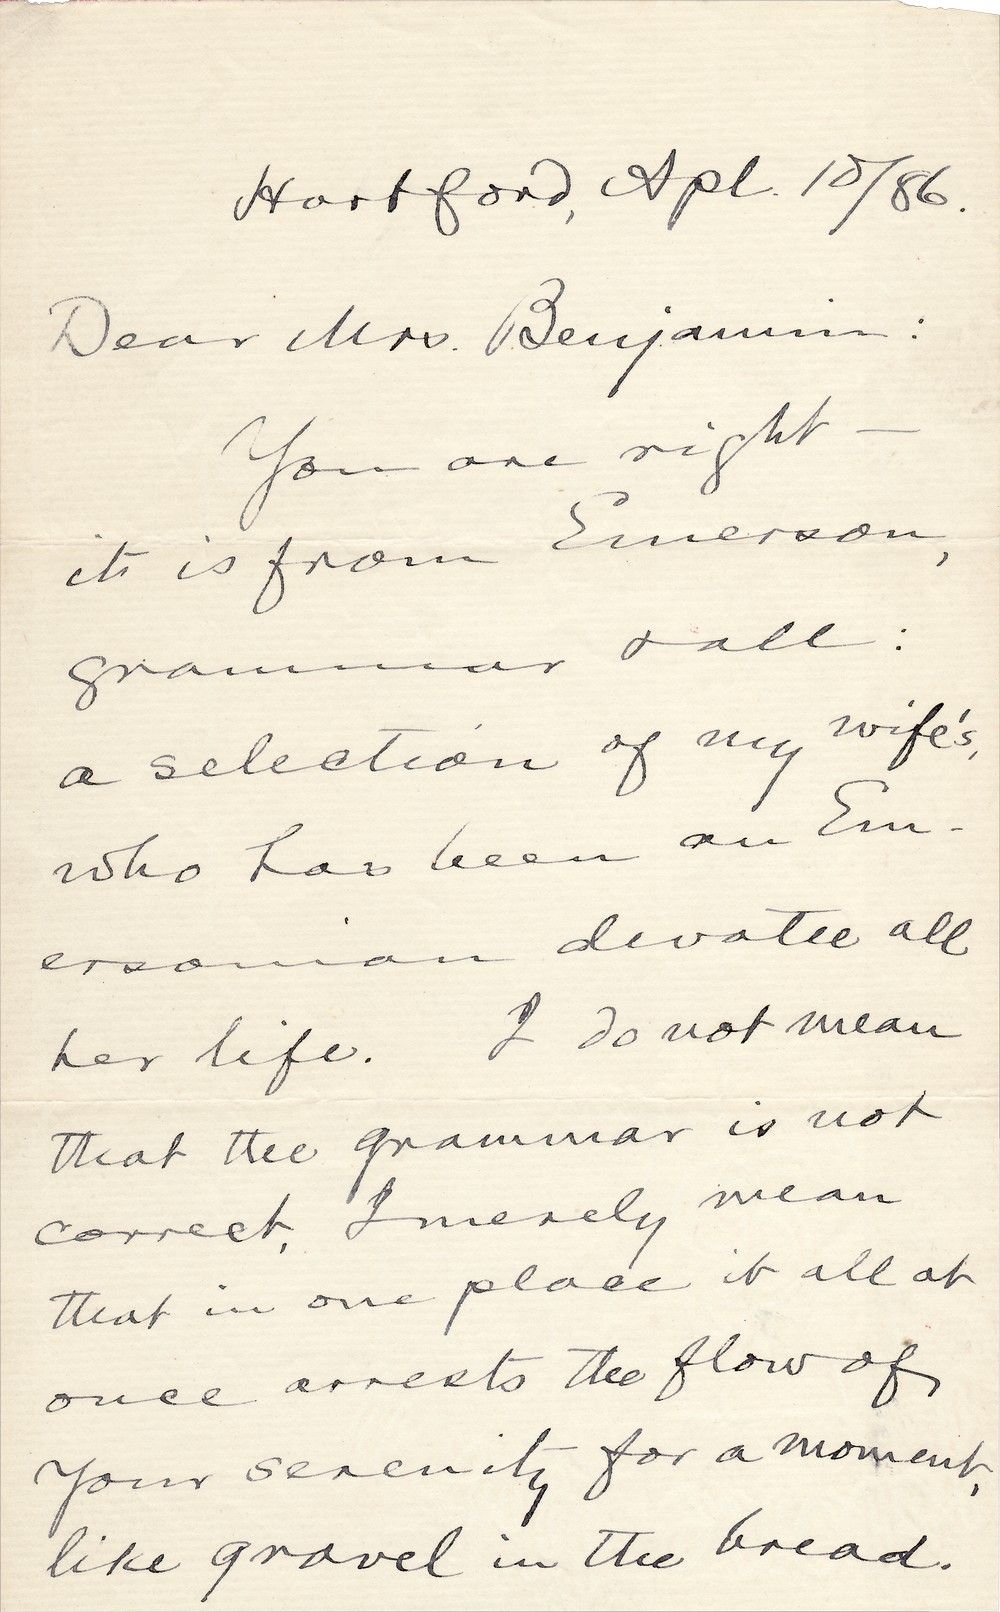 Hartford, Apl. 15/86.
Dear Mrs. Benjamin:
You are right —
it is from Emerson,
grammar & all:
a selection of my wife's,
who has been an Em-
ersonian devotee all
her life. I do not mean
that the grammar is not
correct, I merely mean
that in one place it all at
once arrests the flow of
your serenity for a moment,
like gravel in the bread.